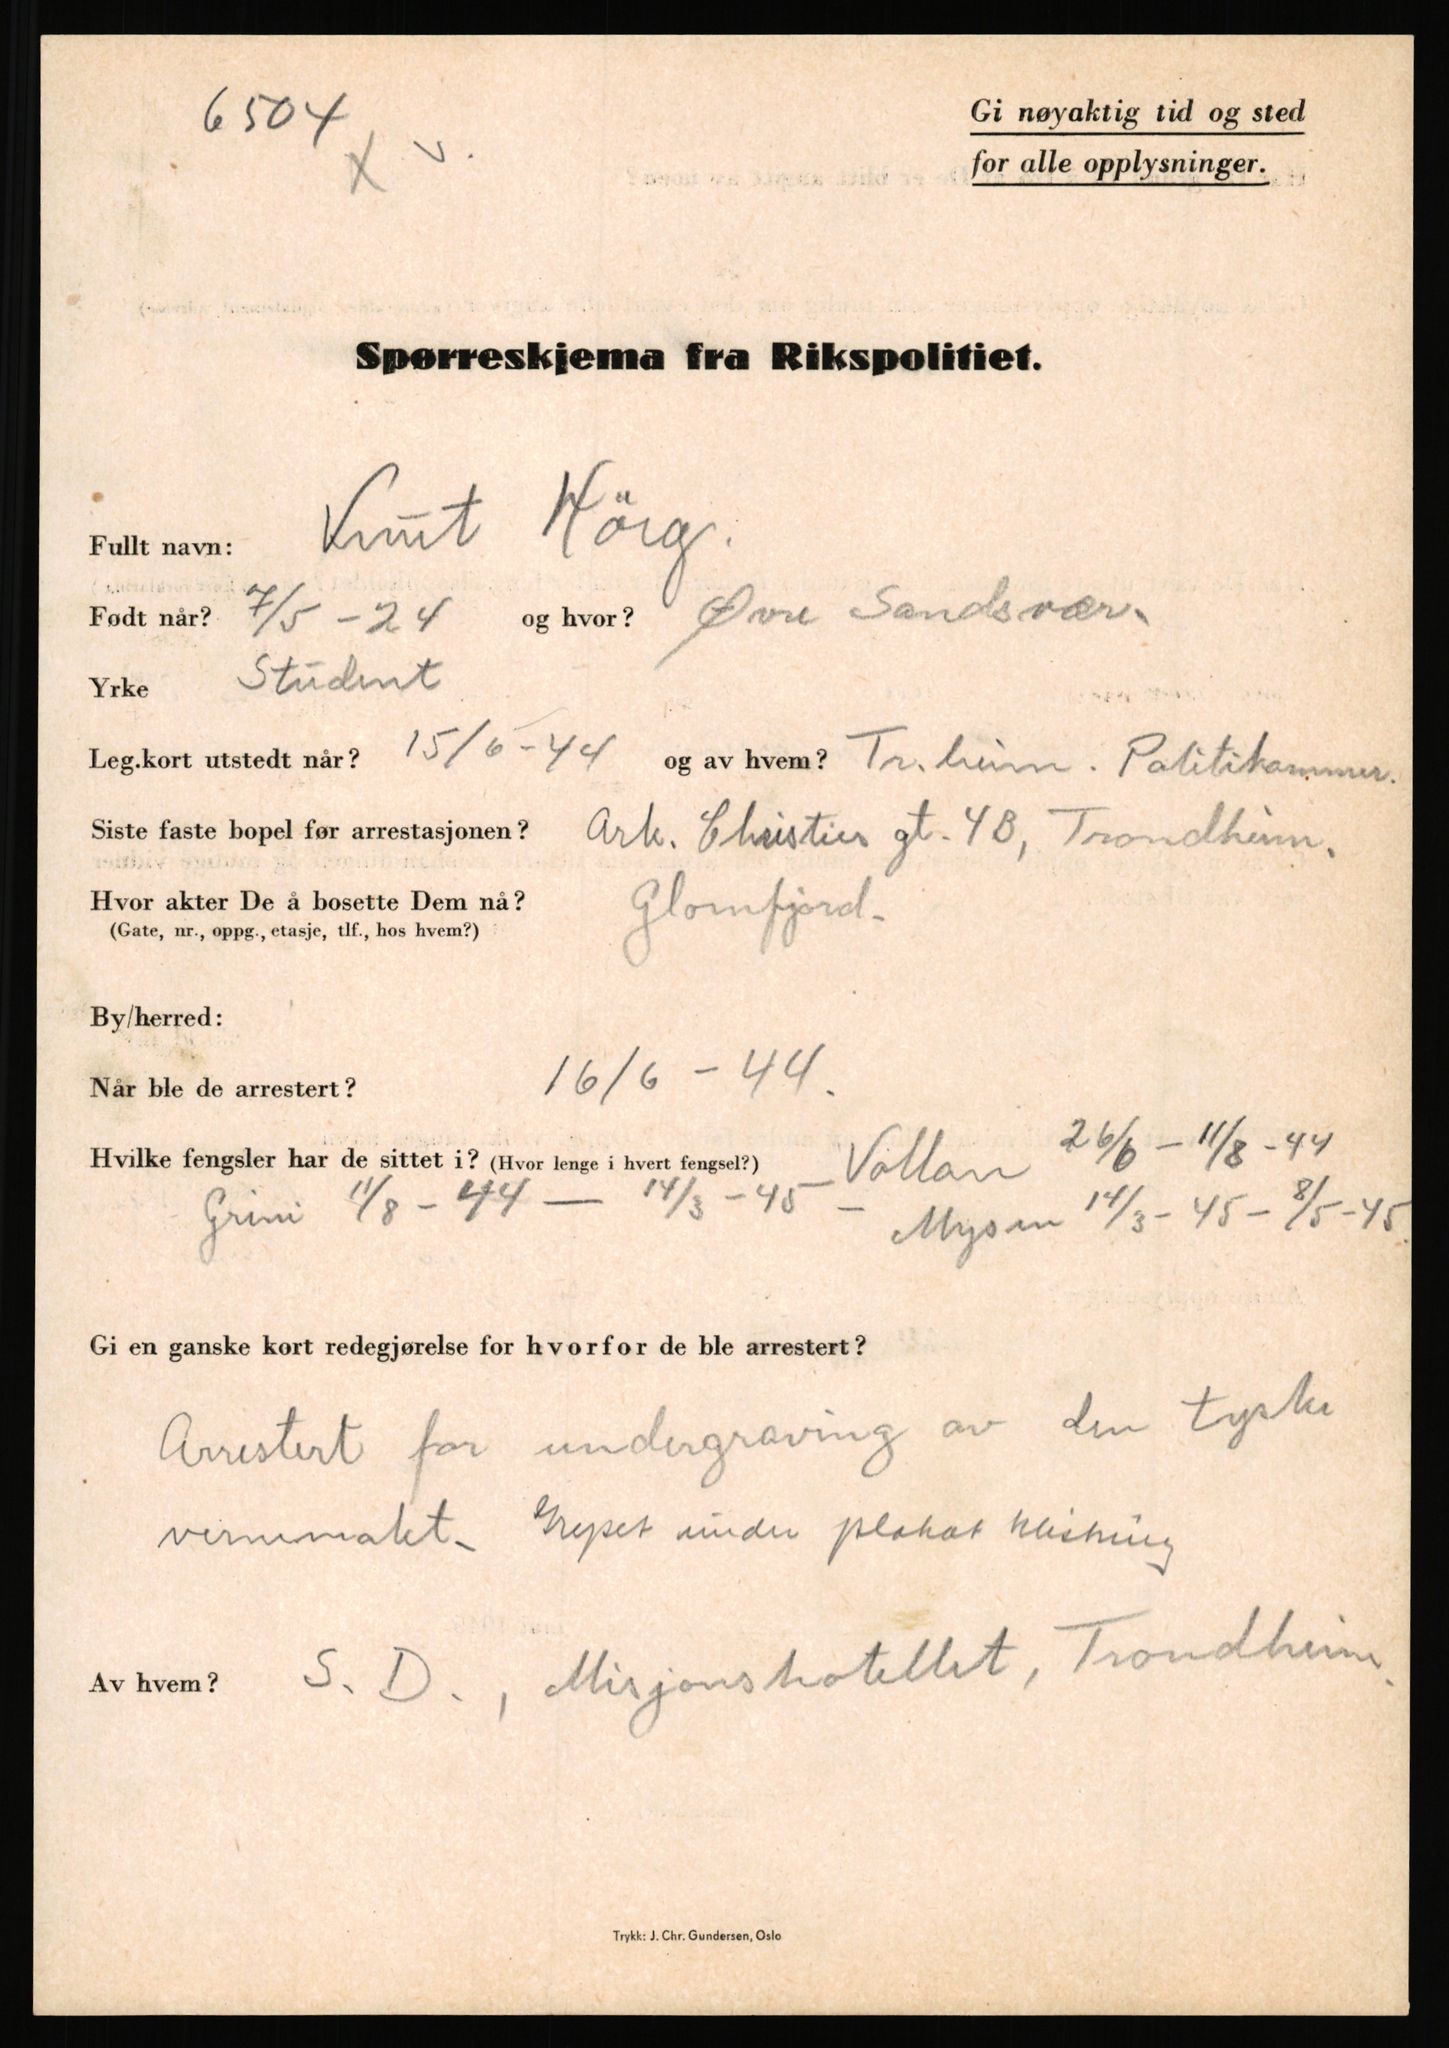 6504
X v.
Gi nøyaktig tid og sted
for alle opplysninger.
Spørreskjema fra Rikspolitiet.
Fullt navn: Knut Hörg.
Født når? 7/5 - 24 og hvor? Øvre Sandsvær.
Yrke Student
Leg.kort utstedt når? 15/6-44 og av hvem? Tr.heim. Politikammer.
Siste faste bopel før arrestasjonen? Ark. Christies gt. 4B, Trondheim.
Hvor akter De å bosette Dem nå? Glomfjord-
(Gate, nr., oppg., etasje, tlf., hos hvem?)
By/herred:
Når ble de arrestert? 16/6 - 44.
Hvilke fengsler har de sittet i? (Hvor lenge i hvert fengsel?) - Vollan 26/6 - 11/8 - 44
Grini 11/8 - 44 — 14/3 - 45 - Mysen 14/3 - 45 - 8/5 - 45.
Gi en ganske kort redegjørelse for hvorfor de ble arrestert?
Arrestert for undergraving av den tyske
vernemakt- Grepet under plakat klistring
Av hvem? S. D., Misjonshotellet, Trondheim.
Trykk: J. Chr. Gundersen, Oslo